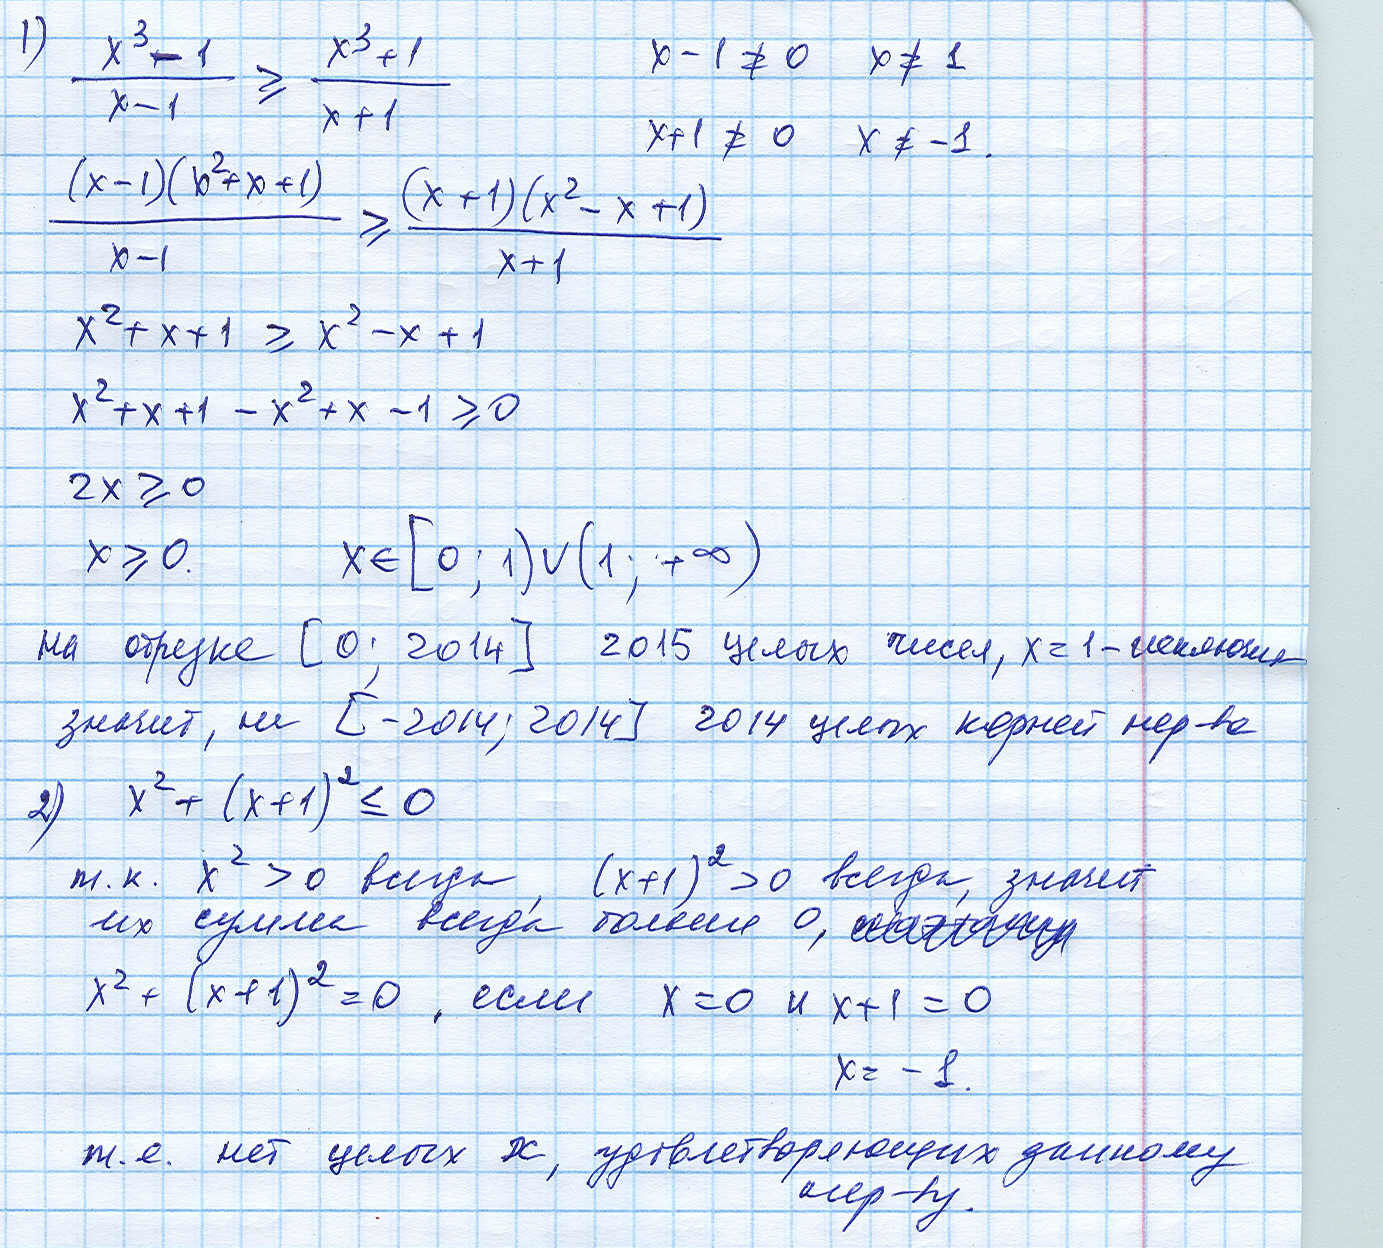 1) (x³ - 1)/(x - 1) ≥ (x³ + 1)/(x + 1)    x - 1 ≠ 0    x ≠ 1
x + 1 ≠ 0    x ≠ -1.
((x - 1)(x² + x + 1))/(x - 1) ≥ ((x + 1)(x² - x + 1))/(x + 1)
x² + x + 1 ≥ x² - x + 1
x² + x + 1 - x² + x - 1 ≥ 0
2x ≥ 0
x ≥ 0.    x ∈ [0; 1) ∪ (1; +∞)
на отрезке [0; 2014] 2015 целых чисел, x = 1 -
значит, на [-2014; 2014] 2014 целых корней нер-ва
2) x² + (x + 1)² ≤ 0
т.к. x² > 0 всегда, (x + 1)² > 0 всегда, значит
их сумма всегда больше 0,
x² + (x + 1)² = 0, если x = 0 и x + 1 = 0
x = -1.
т.е. нет целых x, удовлетворяющих данному
нер-ву.